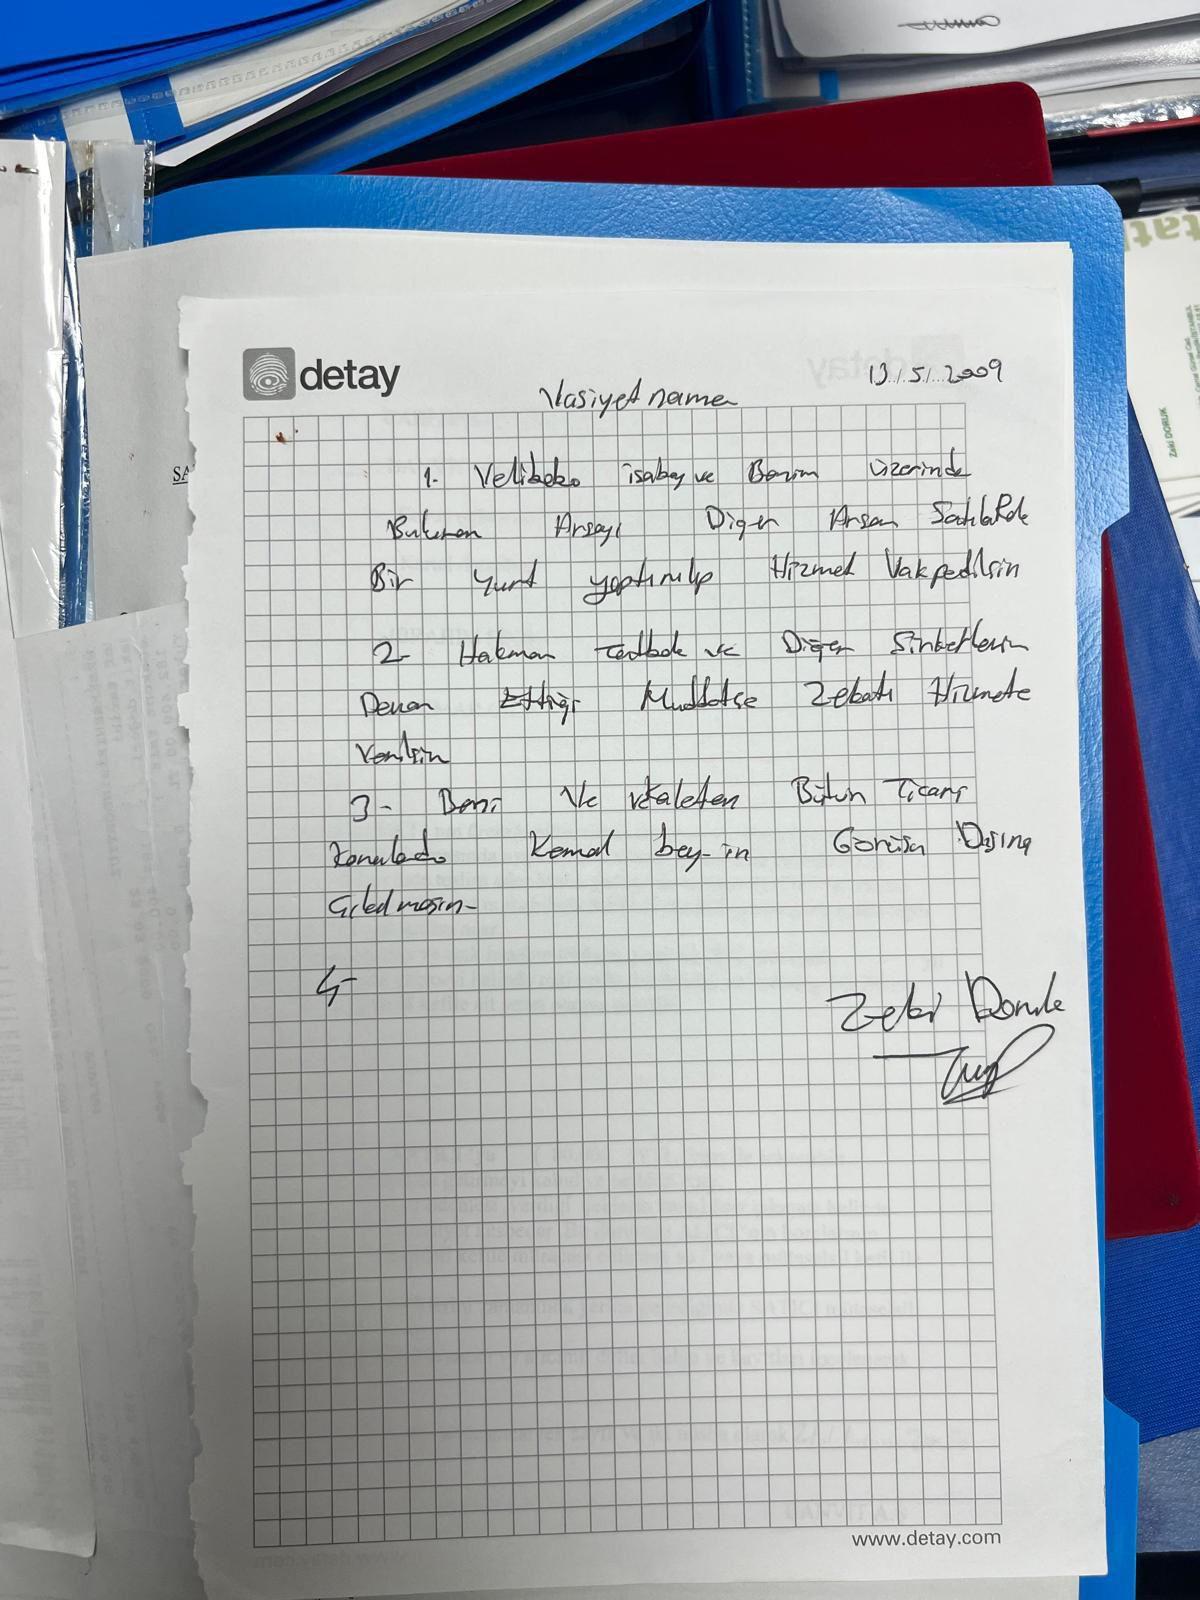 detay
13/5/2009
Vasiyet name
1- Velibaba isabey ve Benim üzerinde
Bulunan Arsayı Diğer Arsam Satılarak
Bir yurt yaptırılıp Hizmet Vakfedilsin
2- Hakman ve Diğer Şirketlerin
Devam Ettiği Müddetçe Zekatı Hizmete
Verilsin
3- Beni Ve vekaleten Bütün Ticari
Konularda Kemal bey-in Görüşü Dışına
Çıkılmasın-
4-
Zeki Doruk
www.detay.com
Zeki DORUK
SA